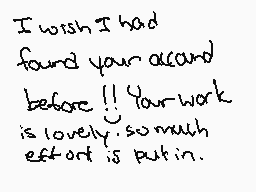 I wish I had
found your accound
before!! Your work
is lovely. so much
effort is put in.